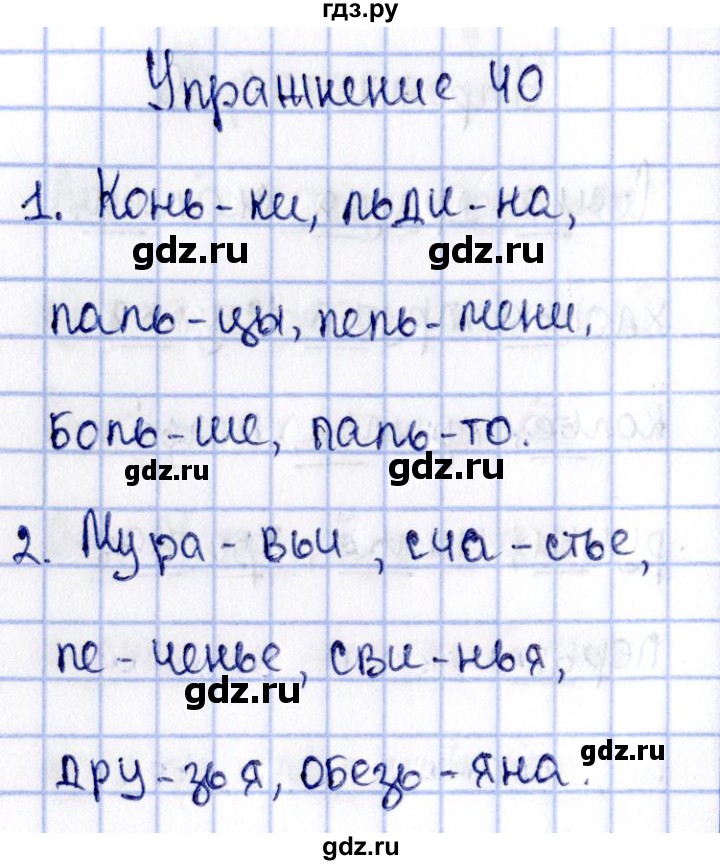 гдз.ру
Упражнение 40
1. Конь-ки, льди-на,
gdz.ru gdz.ru
паль-цы, пель-мени,
боль-ше, паль-то.
gdz.ru gdz.ru
2. Мура-вьи, сча-стье,
пе-ченье, сви-нья,
gdz.ru
gdz.ru
дру-зья, обезь-яна.
gdz.ru